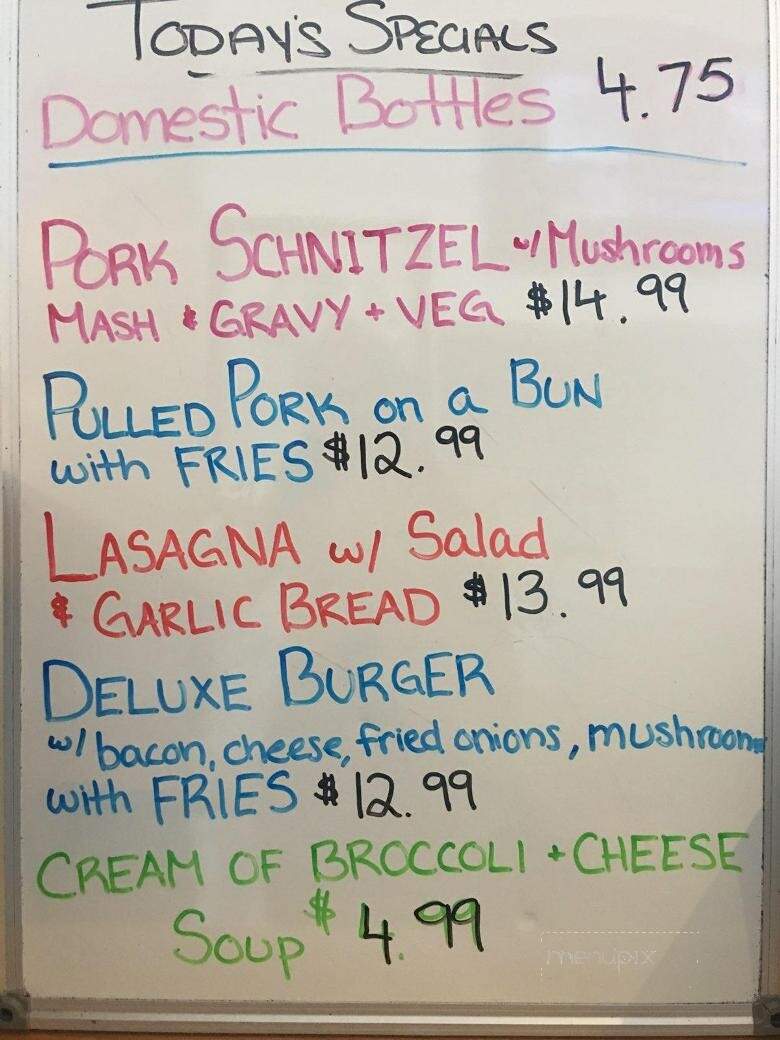 TODAY'S SPECIALS
Domestic Bottles 4.75
PORK SCHNITZEL w/ Mushrooms
MASH & GRAVY + VEG $14.99
PULLED PORK on a BUN
with FRIES $12.99
LASAGNA w/ Salad
& GARLIC BREAD $13.99
DELUXE BURGER
w/ bacon, cheese, fried onions, mushrooms
with FRIES $12.99
CREAM OF BROCCOLI + CHEESE
Soup $4.99
menupix